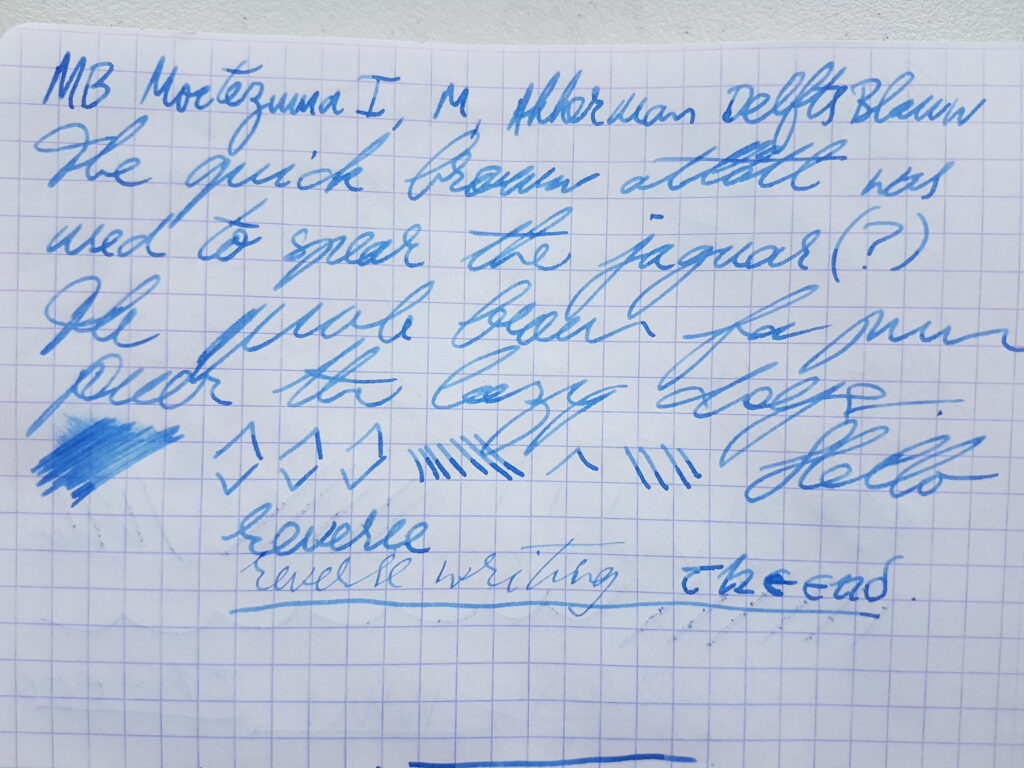 MB Moctezuma I, M, Akkerman Delfts Blauw
The quick brown atlatl was
used to spear the jaguar (?)
The quick brown fox jum
the lazy dogs.
Hello
Reverse
reverse writing the end.